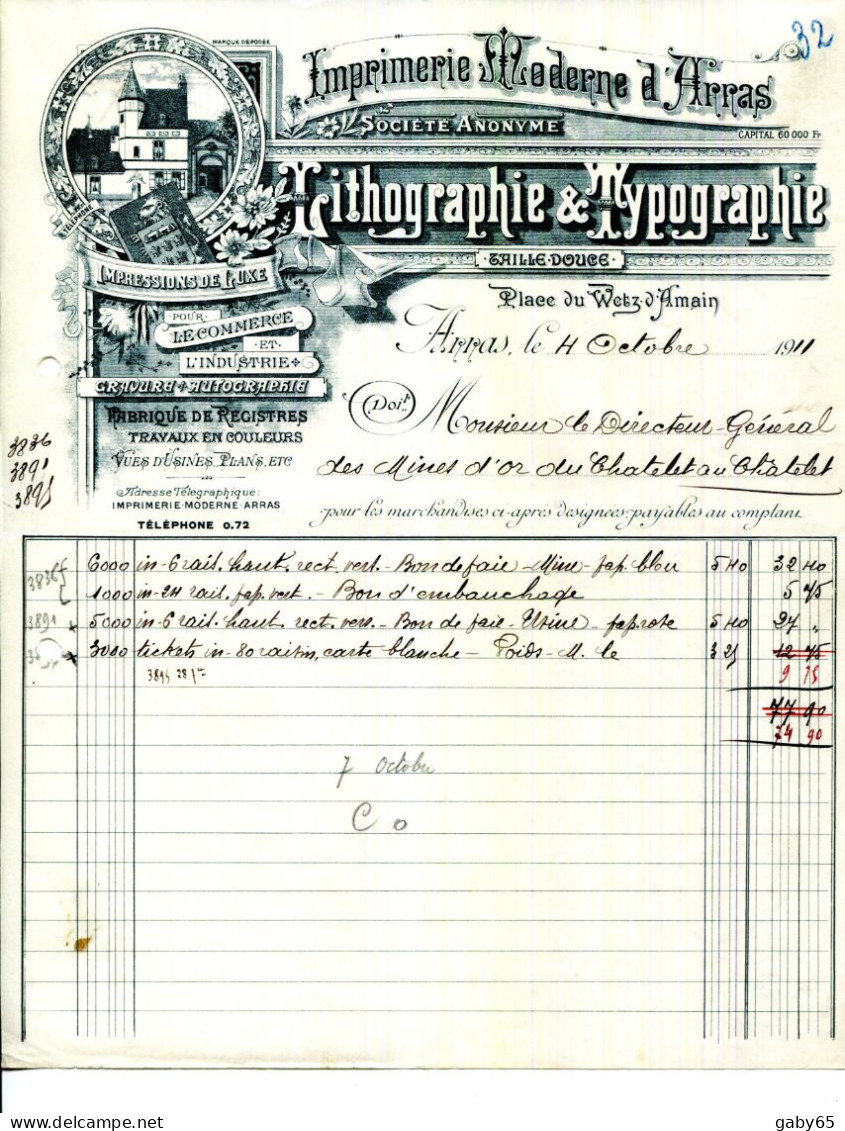 32
MARQUE DÉPOSÉE
Imprimerie Moderne d'Arras
SOCIÉTÉ ANONYME
CAPITAL 60 000 Fr
Lithographie & Typographie
TAILLE-DOUCE
TÉLÉPHONE
IMPRESSIONS DE LUXE
POUR
LE COMMERCE
ET
L'INDUSTRIE
GRAVURE AUTOGRAPHIE
FABRIQUE DE REGISTRES
TRAVAUX EN COULEURS
VUES D'USINES, PLANS, ETC
Adresse Télégraphique:
IMPRIMERIE-MODERNE-ARRAS
TÉLÉPHONE 0.72
Place du Wetz-d'Amain
Arras, le 4 Octobre 1911
Doit Monsieur le Directeur-Général
des Mines d'or du Chatelet au Châtelet
pour les marchandises ci-après désignées, payables au comptant
3836
3891
3895
3836 6000 in-6 rais. haut. rect. vers. - Bon de paie - Mine - pap. bleu 5 40 32 40
1000 in-24 rais. pap. vert. - Bon d'embauchage 5 75
3891 x 5000 in-6 rais. haut. rect. vers. - Bon de paie - Usine - pap. rose 5 40 27 "
x 3000 tickets in-80 raisin, carte blanche - Poids - M. le 3 25 12 75
3895 9 75
77 90
74 90
7 Octobre
C o
delcampe.net
gaby65